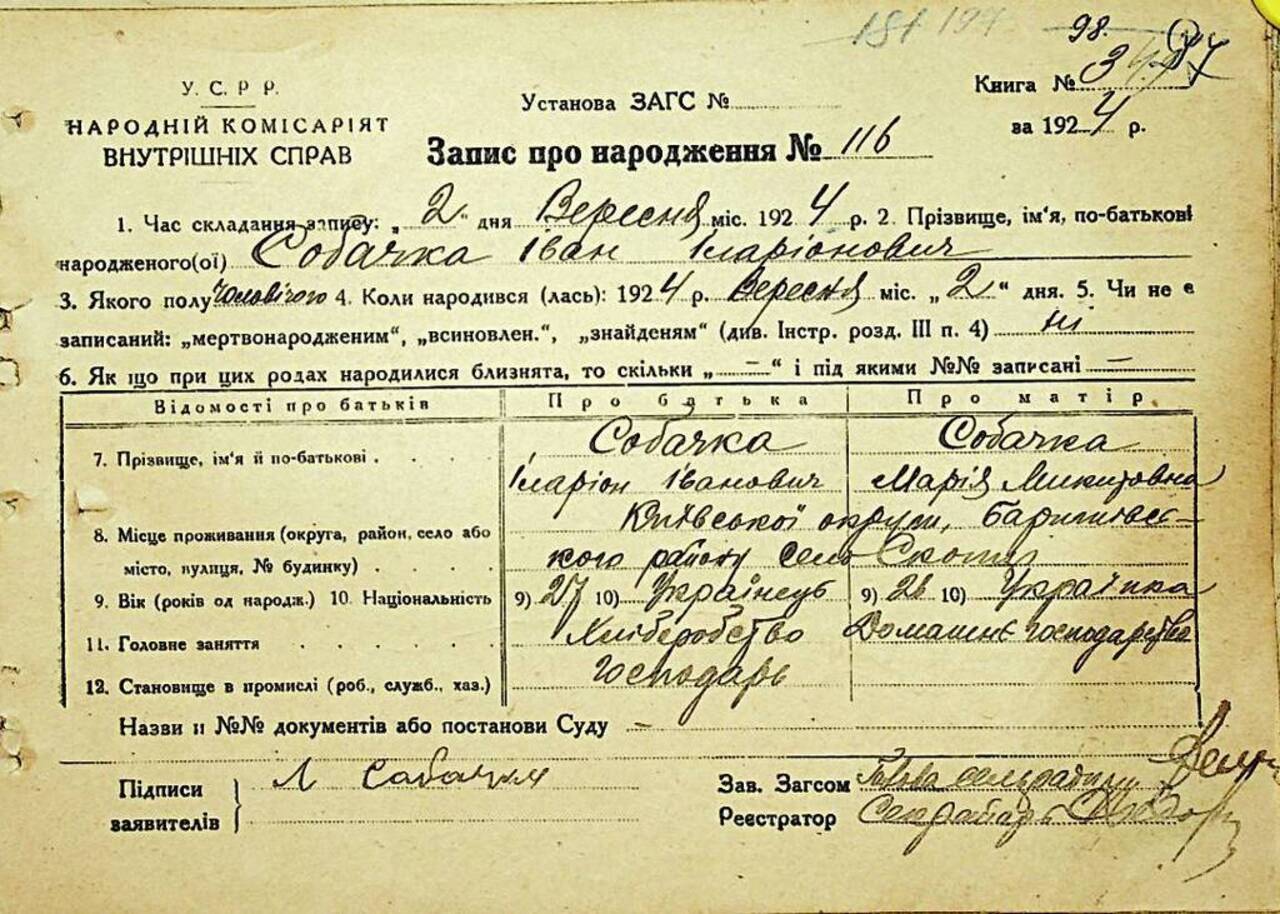 181 194
98.
У. С. Р Р.
НАРОДНІЙ КОМІСАРІЯТ
ВНУТРІШНІХ СПРАВ
Установа ЗАГС №
Книга № 3
за 1924 р.
Запис про народження № 116
1. Час складання запису: „2“ дня Вересня міс. 1924 р. 2. Прізвище, ім'я, по-батькові
народженого(ої) Собачка Іван Іларіонович
3. Якого полу чоловічого 4. Коли народився (лась): 1924 р. Вересня міс. „2“ дня. 5. Чи не є
записаний: „мертвонародженим“, „всиновлен.“, „знайденям“ (див. Інстр. розд. III п. 4) ні
6. Як що при цих родах народилися близнята, то скільки „—“ і під якими №№ записані —
Відомості про батьків Про батька Про матір
7. Прізвище, ім'я й по-батькові . . . . Собачка Собачка
Іларіон Іванович Марія Микитовна
8. Місце проживання (округа, район, село або Київської округи, Баришівсь-
місто, вулиця, № будинку) . . . . кого району село
9. Вік (років од народж.) 10. Національність 9) 27 10) Українець 9) 26 10) Українка
11. Головне заняття . . . . . Хліборобство Домашнє господарство
12. Становище в промислі (роб., служб., хаз.) Господарь
Назви и №№ документів або постанови Суду —
Підписи заявителів Л Собачка
Зав. Загсом Голова сельради
Реєстратор Секретарь